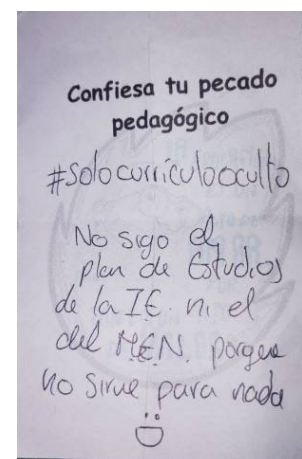 Confiesa tu pecado
pedagógico
#Solocurriculooculto
No sigo el
plan de Estudios
de la I.E. ni el
del M.E.N. porque
no sirve para nada